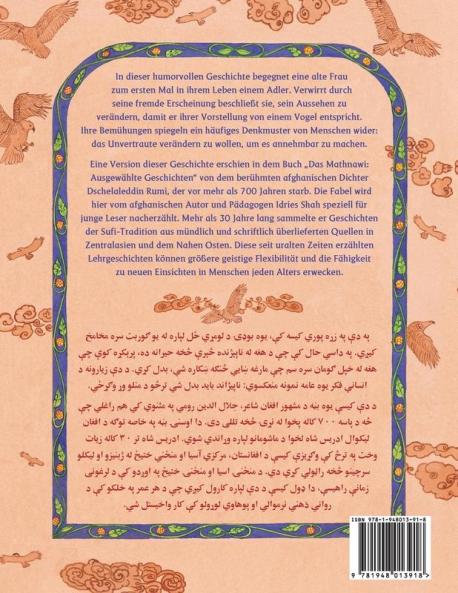 In dieser humorvollen Geschichte begegnet eine alte Frau
zum ersten Mal in ihrem Leben einem Adler. Verwirrt durch
seine fremde Erscheinung beschließt sie, sein Aussehen zu
verändern, damit er ihrer Vorstellung von einem Vogel entspricht.
Ihre Bemühungen spiegeln ein häufiges Denkmuster von Menschen wider:
das Unvertraute verändern zu wollen, um es annehmbar zu machen.
Eine Version dieser Geschichte erschien in dem Buch „Das Mathnawi:
Ausgewählte Geschichten“ von dem berühmten afghanischen Dichter
Dschelaleddin Rumi, der vor mehr als 700 Jahren starb. Die Fabel wird
hier vom afghanischen Autor und Pädagogen Idries Shah speziell für
junge Leser nacherzählt. Mehr als 30 Jahre lang sammelte er Geschichten
der Sufi-Tradition aus mündlich und schriftlich überlieferten Quellen in
Zentralasien und dem Nahen Osten. Diese seit uralten Zeiten erzählten
Lehrgeschichten können größere geistige Flexibilität und die Fähigkeit
zu neuen Einsichten in Menschen jeden Alters erwecken.
په دې په زړه پورې کیسه کې، یوه بوډۍ د لومړي ځل لپاره له یو ګوربت سره مخامخ
کیږي. په داسې حال کې چې د هغه له ناپېژنده څېرې څخه حیرانه ده، پرېکړه کوي چې
هغه له خپل ګومان سره سم چې مارغه ښایي څنګه ښکاره شي، بدل کړي. د دې زیارونه د
انساني فکر یوه عامه نمونه منعکسوي: ناپېژاند باید بدل شي ترڅو د منلو وړ وګرځي.
د دې کیسې یوه بڼه د مشهور افغان شاعر، جلال الدین رومي په مثنوي کې هم راغلې چې
څه د پاسه ۷۰۰ کاله پخوا له نړۍ څخه تللی دی. دا اوسنۍ بڼه په خاصه توګه د افغان
لیکوال ادریس شاه لخوا د ماشومانو لپاره وړاندې شوې. ادریس شاه تر ۳۰ کاله زیات
وخت په ترڅ کې کیسې د افغانستان، مرکزي آسیا او منځني ختیځ له ژبنیزو او لیکلو
سرچینو څخه راټولې کړې دي. د منځنۍ اسیا او منځني ختیځ په اوږدو کې د لرغوني
زمانې راهیسې، دا ډول کیسې د دې لپاره کارول کیږي چې د هر عمر په خلکو کې د
رواني ذهني نرموالي او پوهاوي لوړولو کې کار واخیستل شي.
ISBN 978-1-948013-91-8
9 781948 013918